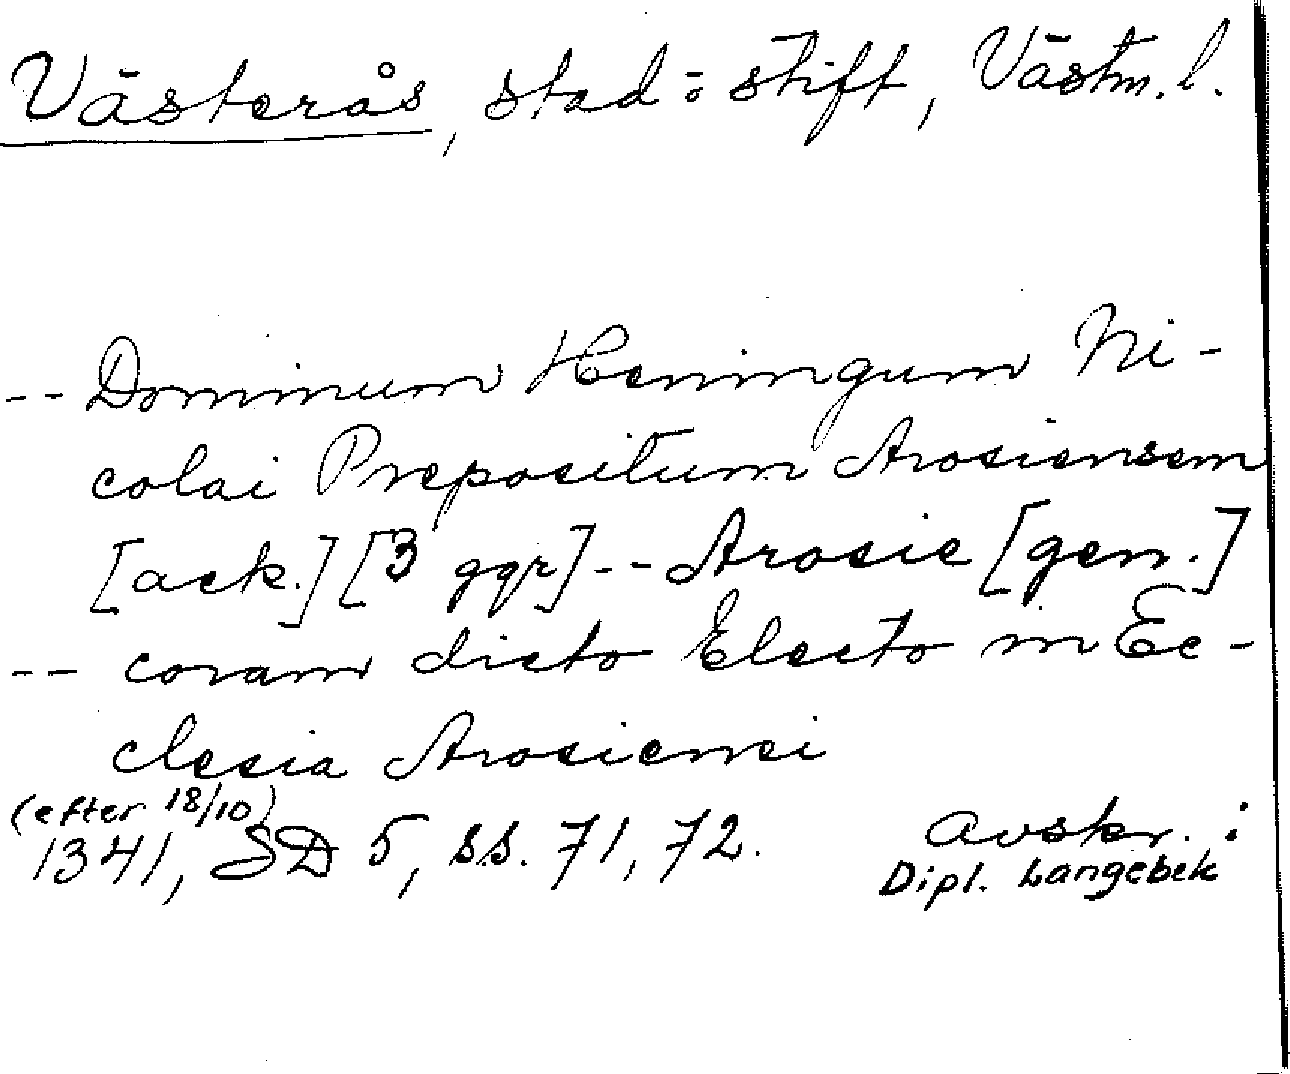 Västerås, stad o stift, Västm. l.
-- Dominum Heningum Ni-
colai Prepositum Arosiensem
[ack.] [3 ggr] -- Arosie [gen.]
-- coram dicto Electo in Ec-
clesia Arosiensi
(efter 18/10)
1341, SD 5, ss. 71, 72. avskr. i
Dipl. Langebek